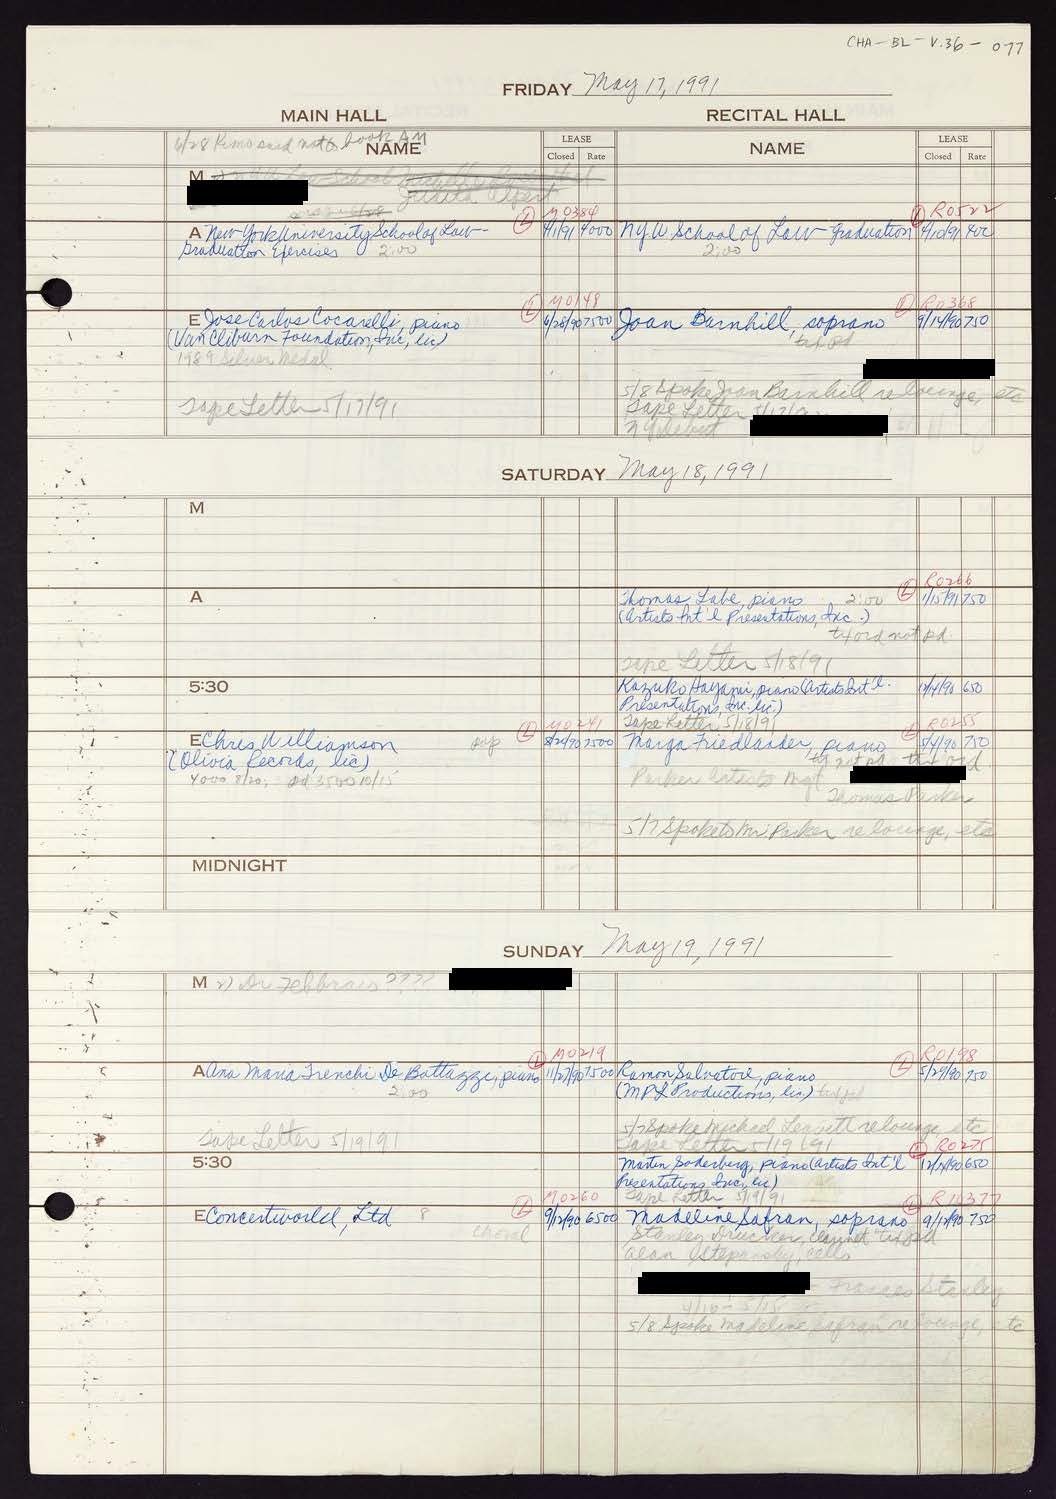 CHA-BL-V.36-077
FRIDAY May 17, 1991
MAIN HALL
RECITAL HALL
6/28 said not to book AM
NAME
LEASE
Closed Rate
NAME
LEASE
Closed Rate
M
M0384
R0522
A New York University School of Law- 4/1/91 4000
Graduation Exercises 2:00
N.Y.U School of Law Graduation 4/10/91
2:00
M0148
R0368
E Jose Carlos Cocarelli, piano 6/28/90 7500
(Van Cliburn Foundation, Inc., lic)
1989 Silver Medal
Tape Letter 5/17/91
Joan Barnhill, soprano 9/14/90 750
5/8 Spoke Joan Barnhill re lounge, etc
Tape Letter
NY debut
SATURDAY May 18, 1991
M
R0266
A
Thomas Labe, piano 2:00 1/15/91 750
(Artists Int'l Presentations, Inc.)
not pd.
Tape Letter 5/18/91
5:30
Kazuko Hayami, piano (Artists Int'l. 650
Presentations, Inc. lic.)
Tape Letter 5/18/91
M0241
R0255
E Chris Williamson 8/24/90 7500
(Olivia Records, lic)
4000 8/20; pd 3500 10/15
Marga Friedlander, piano 750
Parker Artists Mgt
Thomas Parker
5/7 Spoke to Mr. Parker re lounge, etc
MIDNIGHT
SUNDAY May 19, 1991
M
M0219
R0198
A Ana Maria Trenchi De Bottazzi, piano 11/27/90 7500
2:00
Tape Letter 5/19/91
Ramon Salvatore, piano 5/29/90 750
(MPL Productions, lic)
5/7 Spoke Michael Leavitt re lounge, etc
Tape Letter 5/19/91
R0275
5:30
Martin Soderberg, piano (Artists Int'l 650
Presentations Inc., lic)
Tape Letter 5/19/91
M0260
E Concertworld, Ltd. 8 9/12/90 6500
choral
Madeline Safran, soprano 750
Stanley Drucker, clarinet
Alan Stepansky, cello
Frances Stanley
5/8 Spoke Madeline Safran re lounge, etc